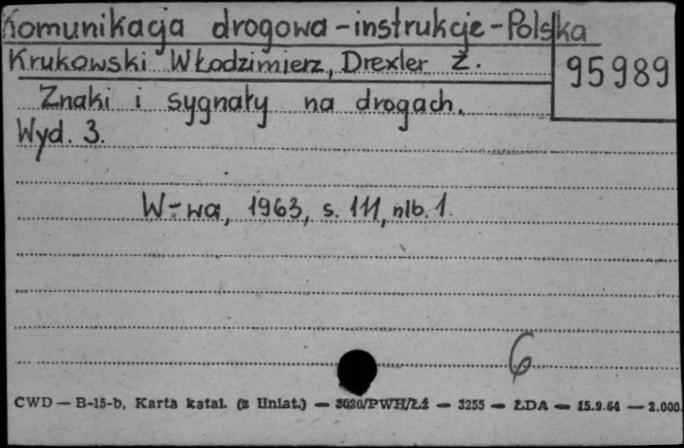 Komunikacja drogowa - instrukcje - Polska
Krukowski Włodzimierz, Drexler Z.
95989
Znaki i sygnały na drogach.
Wyd. 3.
W-wa, 1963, s. 111, nlb. 1.
6
CWD — B-15-b, Karta katal. (z Uniat.) — 3030/PWH/Ł1 — 3255 — ŁDA — 15.9.61 — 2.000.